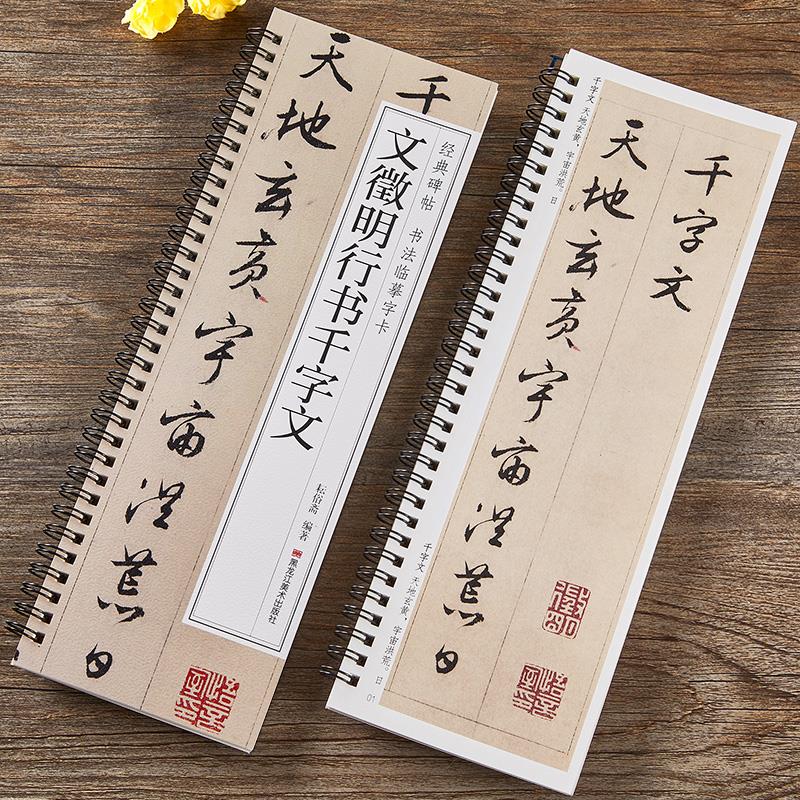 千
天地玄黄宇宙洪荒日
经典碑帖 书法临摹字卡
文徵明行书千字文
耘俗斋 编著
黑龙江美术出版社
千字文 天地玄黄，宇宙洪荒。日
千字文
天地玄黄宇宙洪荒日
千字文 天地玄黄，宇宙洪荒。日
01